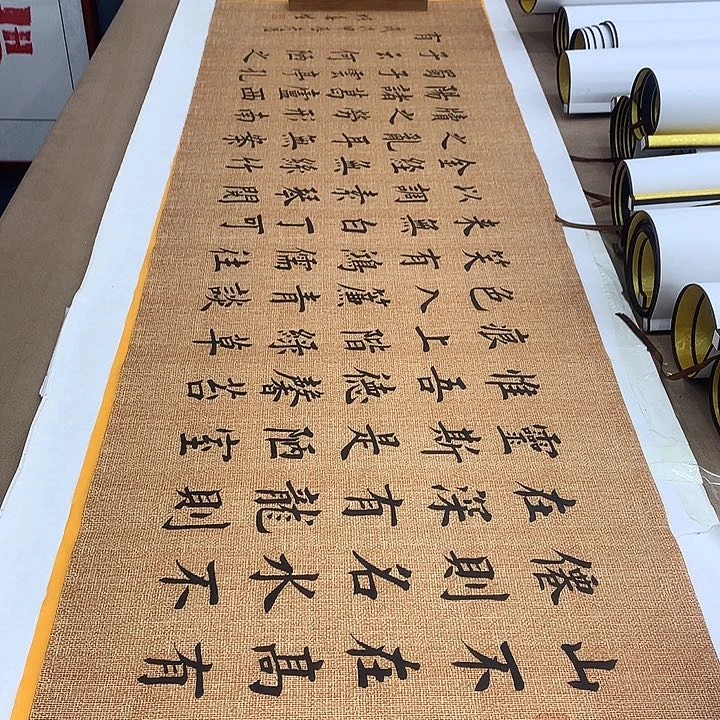 山不在高有
僊則名水不
在深有龍則
靈斯是陋室
惟吾德馨苔
痕上階綠草
色入簾青談
笑有鴻儒往
来無白丁可
以調素琴閱
金經無絲竹
之亂耳無案
牘之勞形南
陽諸葛廬西
蜀子雲亭孔
子云何陋之
有